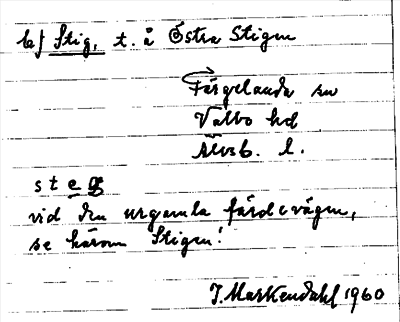 bef Stig, t. å Östra Stigen
Färgelanda sn
Valbo hd
Älvsb. l.
steg
vid den urgamla färdevägen,
se härom Stigen!
J. Markendahl 1960